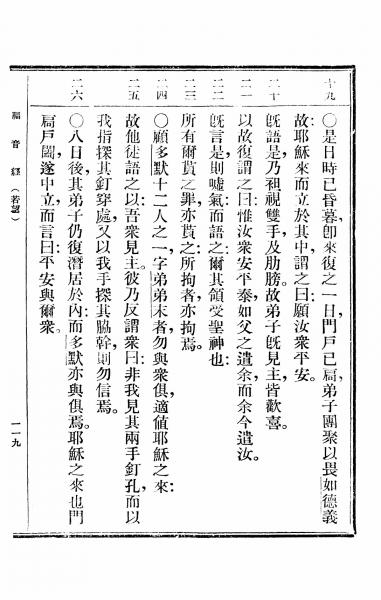 十九
〇是日時已昏暮、卽來復之一日、門戶已扃、弟子團聚以畏如德義
故、耶穌來而立於其中、謂之曰、願汝衆安平。
二十
旣語是、乃袒視雙手及肋膀、故弟子旣見主、皆歡喜。
二一
以故復謂之曰、惟汝衆安平泰、如父之遣余、而余今遣汝、
二二
旣言是、則噓氣而語之、爾其領受聖神也、
二三
所有爾貰之罪、亦貰之、所拘者、亦拘焉。
二四
〇顧多默十二人之一、字弟弟末者、勿與衆俱、適値耶穌之來、
二五
故他徒語之以、吾衆見主、彼乃反謂衆曰、非我見其兩手釘孔、而以
我指探其釘穿處、又以我手探其脇幹、則勿信焉。
二六
〇八日後、其弟子仍復潛居於內、而多默亦與俱焉、耶穌之來也、門
扃戶闔、遂中立、而言曰、平安與爾衆。
福音經 （若翰）
一一九